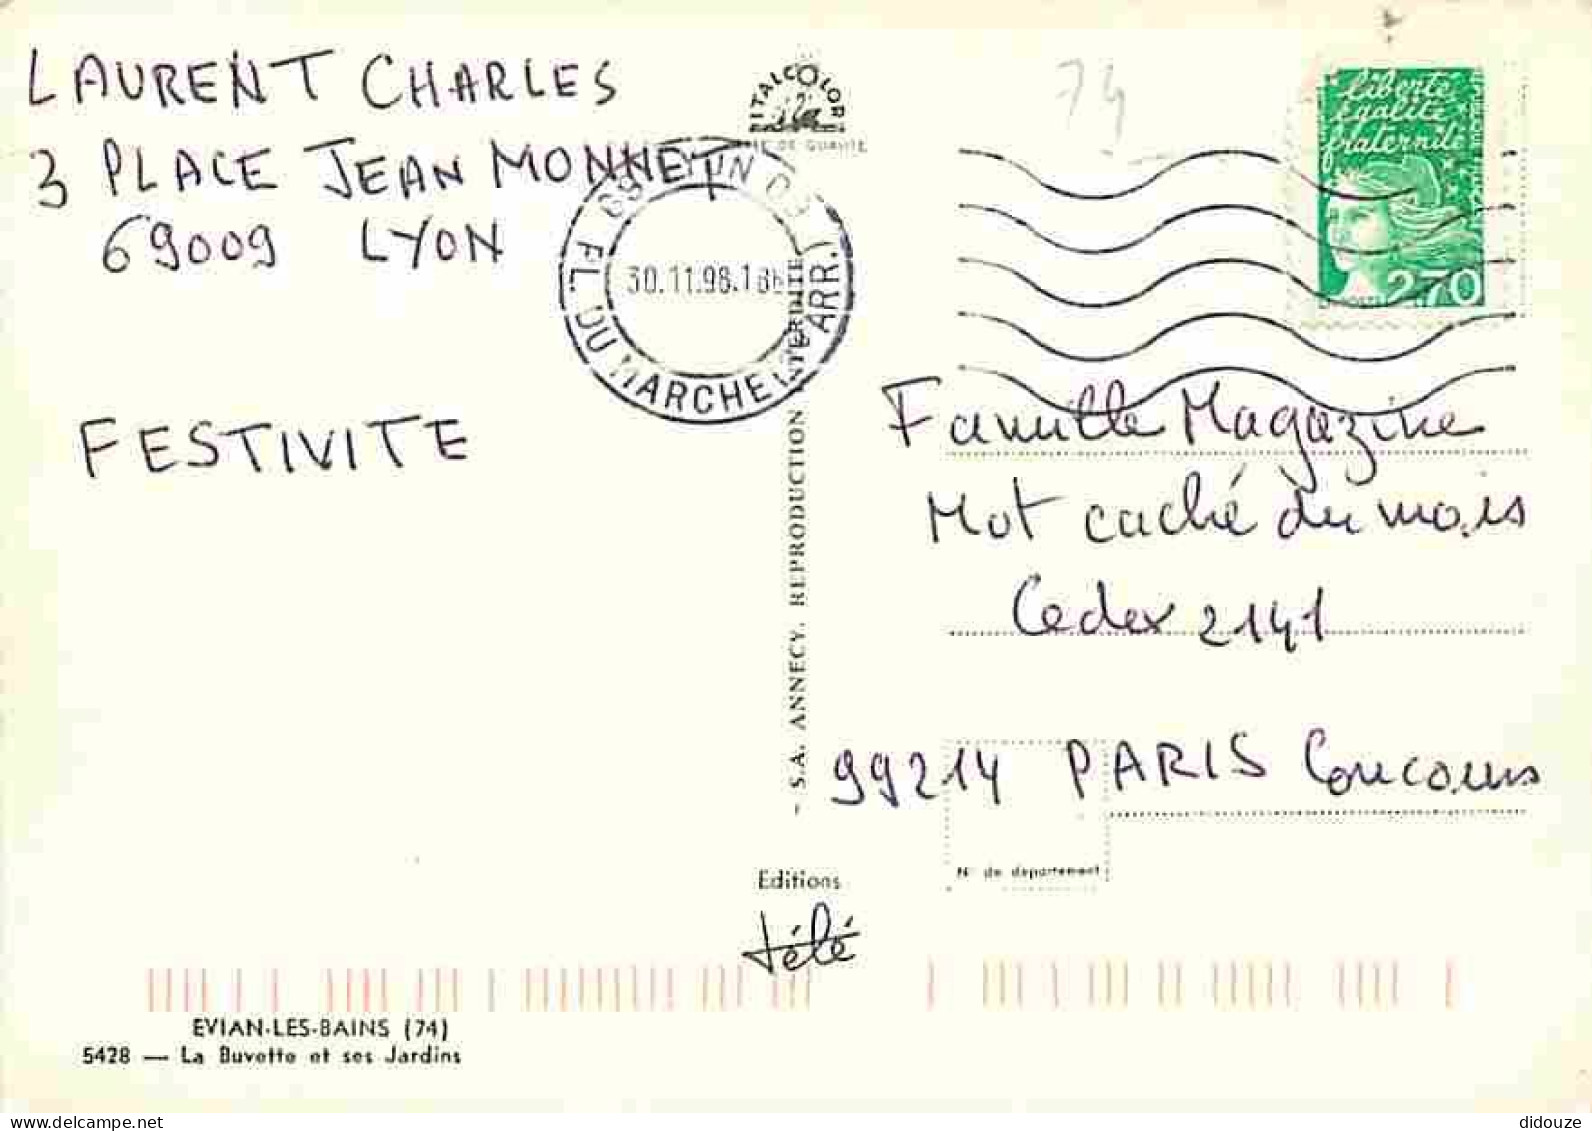 LAURENT CHARLES
3 PLACE JEAN MONNET
69009 LYON
FESTIVITE
ITALCOLOR
DE QUALITE
69 LYON 09
30.11.98.18H
PL. DU MARCHE (9E ARR.)
74
liberté
égalité
fraternité
2,70
Famille Magazine
Mot caché du mois
Cedex 2141
99214 PARIS Concours
N° de département
- S.A. ANNECY. REPRODUCTION INTERDITE
Editions
télé
EVIAN-LES-BAINS (74)
5428 — La Buvette et ses Jardins
delcampe.net
didouze